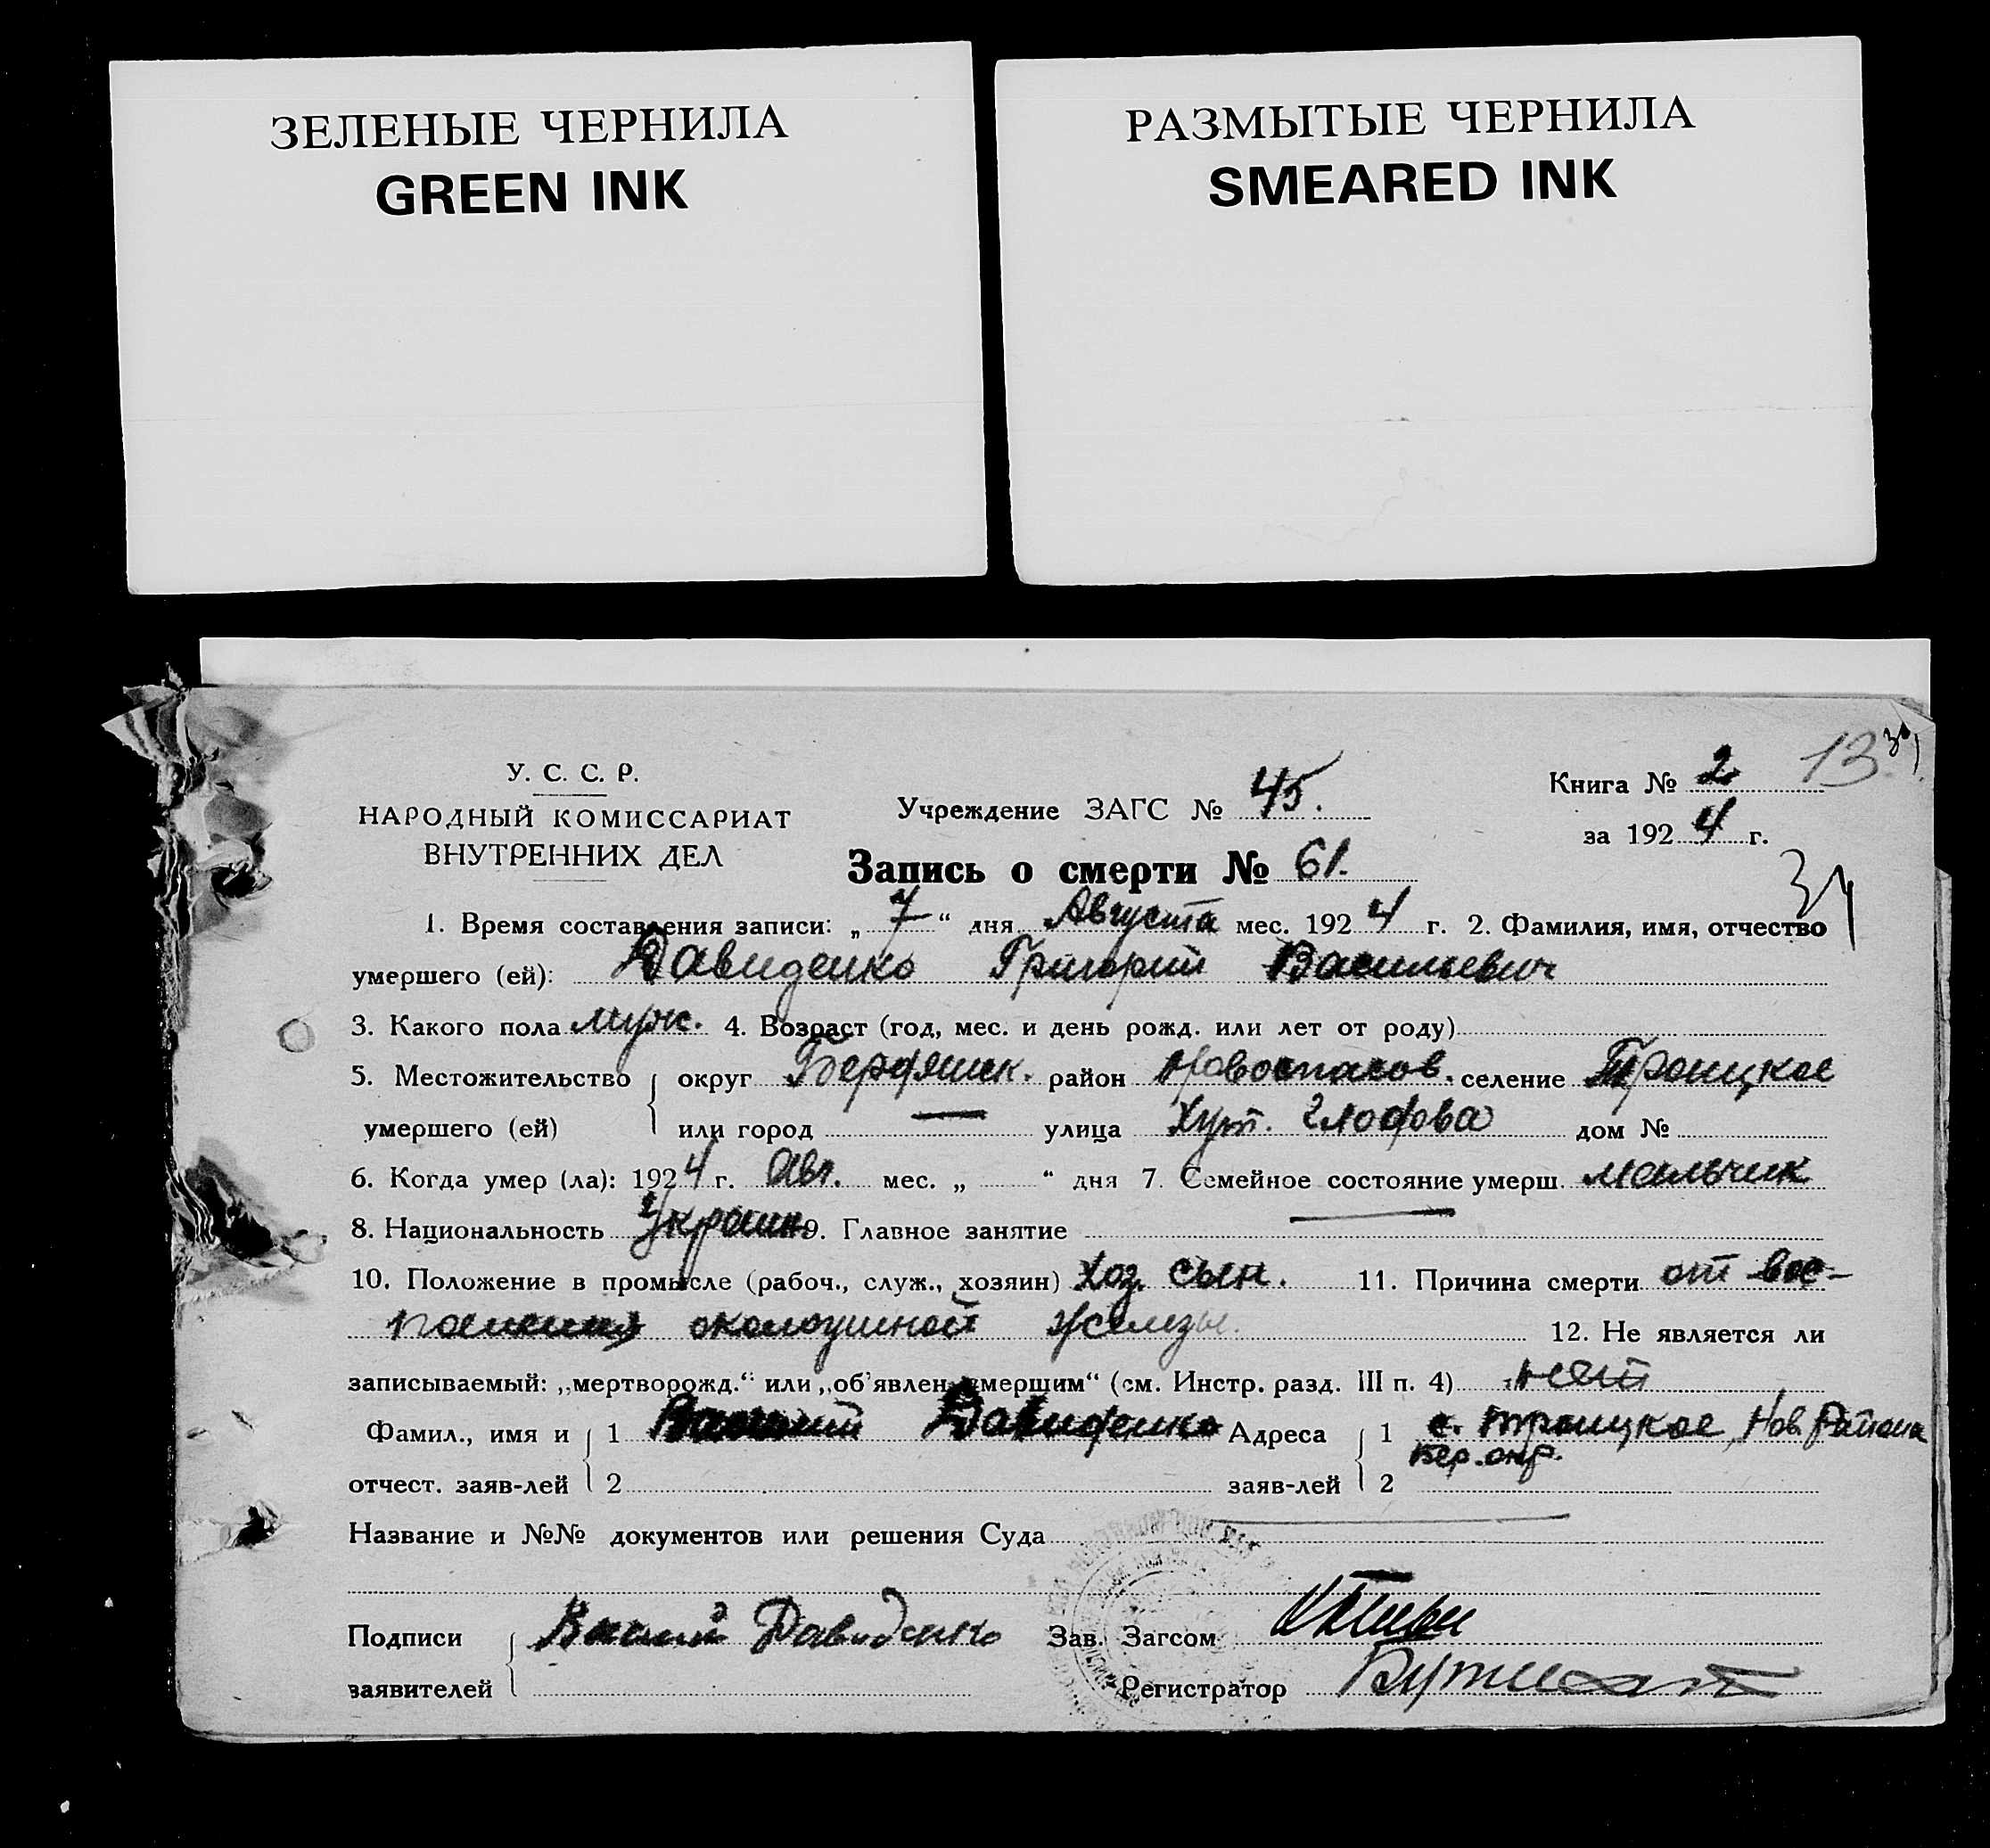 ЗЕЛЕНЫЕ ЧЕРНИЛА
GREEN INK
РАЗМЫТЫЕ ЧЕРНИЛА
SMEARED INK
У. С. С. Р.
НАРОДНЫЙ КОМИССАРИАТ
ВНУТРЕННИХ ДЕЛ
Учреждение ЗАГС № 45.
Книга № 2 13
за 1924 г.
Запись о смерти № 61.
34
1. Время составления записи: „7“ дня Августа мес. 1924 г. 2. Фамилия, имя, отчество
умершего (ей): Давиденко Григорий Васильевич
3. Какого пола муж. 4. Возраст (год, мес. и день рожд. или лет от роду)
5. Местожительство умершего (ей) округ Бердянск. район Новоспасов. селение Троицкое
или город — улица Хут. дом №
6. Когда умер (ла): 1924 г. Авг. мес. „ “ дня 7. Семейное состояние умерш. мальчик
8. Национальность Украин 9. Главное занятие —
10. Положение в промысле (рабоч., служ., хозяин) Хоз. сын. 11. Причина смерти от вос-
паления околоушной железы. 12. Не является ли
записываемый: „мертворожд.“ или „об’явлен. умершим“ (см. Инстр. разд. III п. 4) нет
Фамил., имя и отчест. заяв-лей 1 Василий Давиденко Адреса заяв-лей 1 с. Троицкое, Нов. Района
Бер. окр.
2 2
Название и №№ документов или решения Суда —
Подписи Василий Давиденко Зав. Загсом
заявителей Регистратор